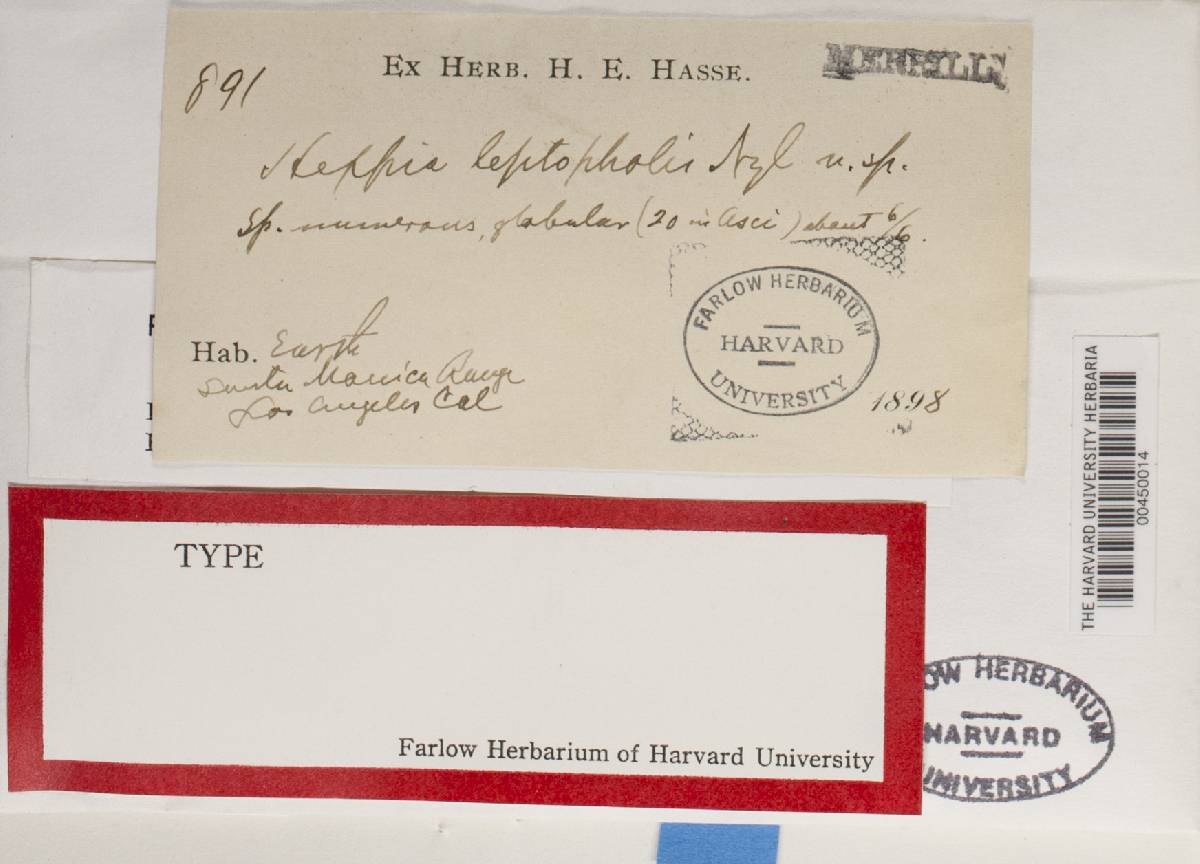 891
EX HERB. H. E. HASSE.
MERRILL
Heppia leptopholis Nyl n. sp.
Sp. numerous, globular (20 in asci) about 6/6.
FARLOW HERBARIUM
HARVARD
UNIVERSITY
Hab. Earth
Santa Monica Range
Los Angeles Cal
1898
THE HARVARD UNIVERSITY HERBARIA
00450014
TYPE
Farlow Herbarium of Harvard University
OW HERBARIUM
HARVARD
UNIVERSITY